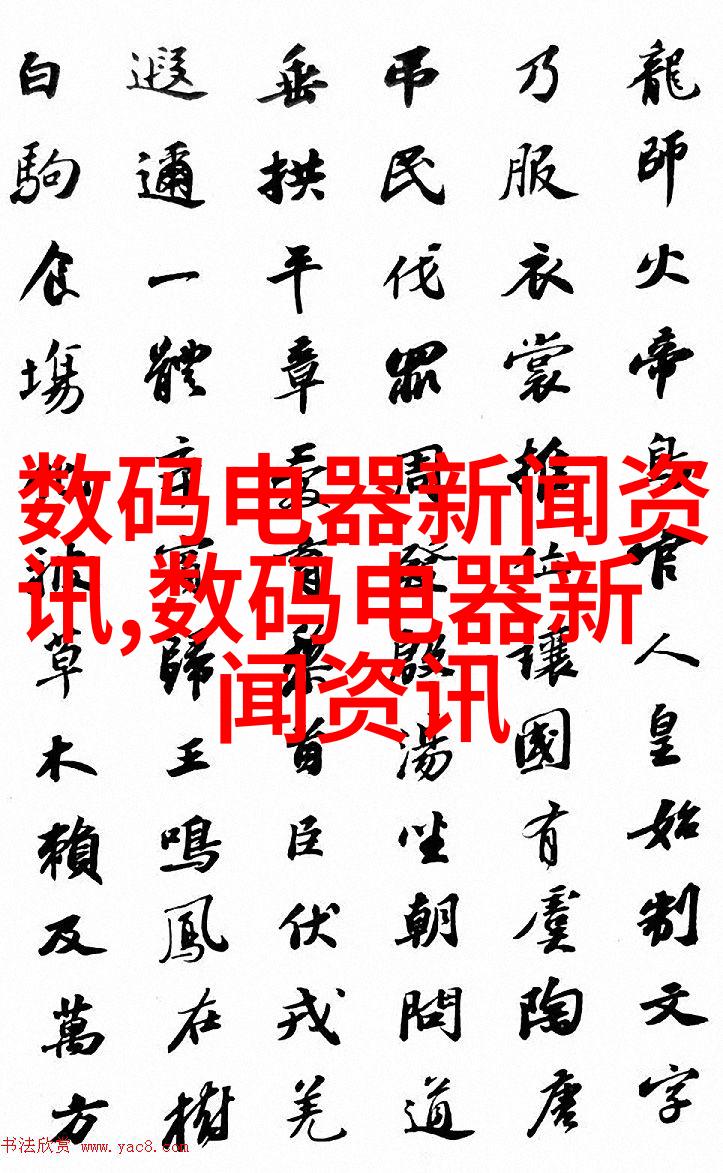 龍師火帝鳥官人皇始制文字
乃服衣裳推位讓國有虞陶唐
吊民伐罪周發殷湯坐朝問道
垂拱平章愛育黎首臣伏戎羌
遐邇一體率賓歸王鳴鳳在樹
白駒食塲化被草木賴及萬方
数码电器新闻资
讯,数码电器新
闻资讯
书法欣赏 www.yac8.com